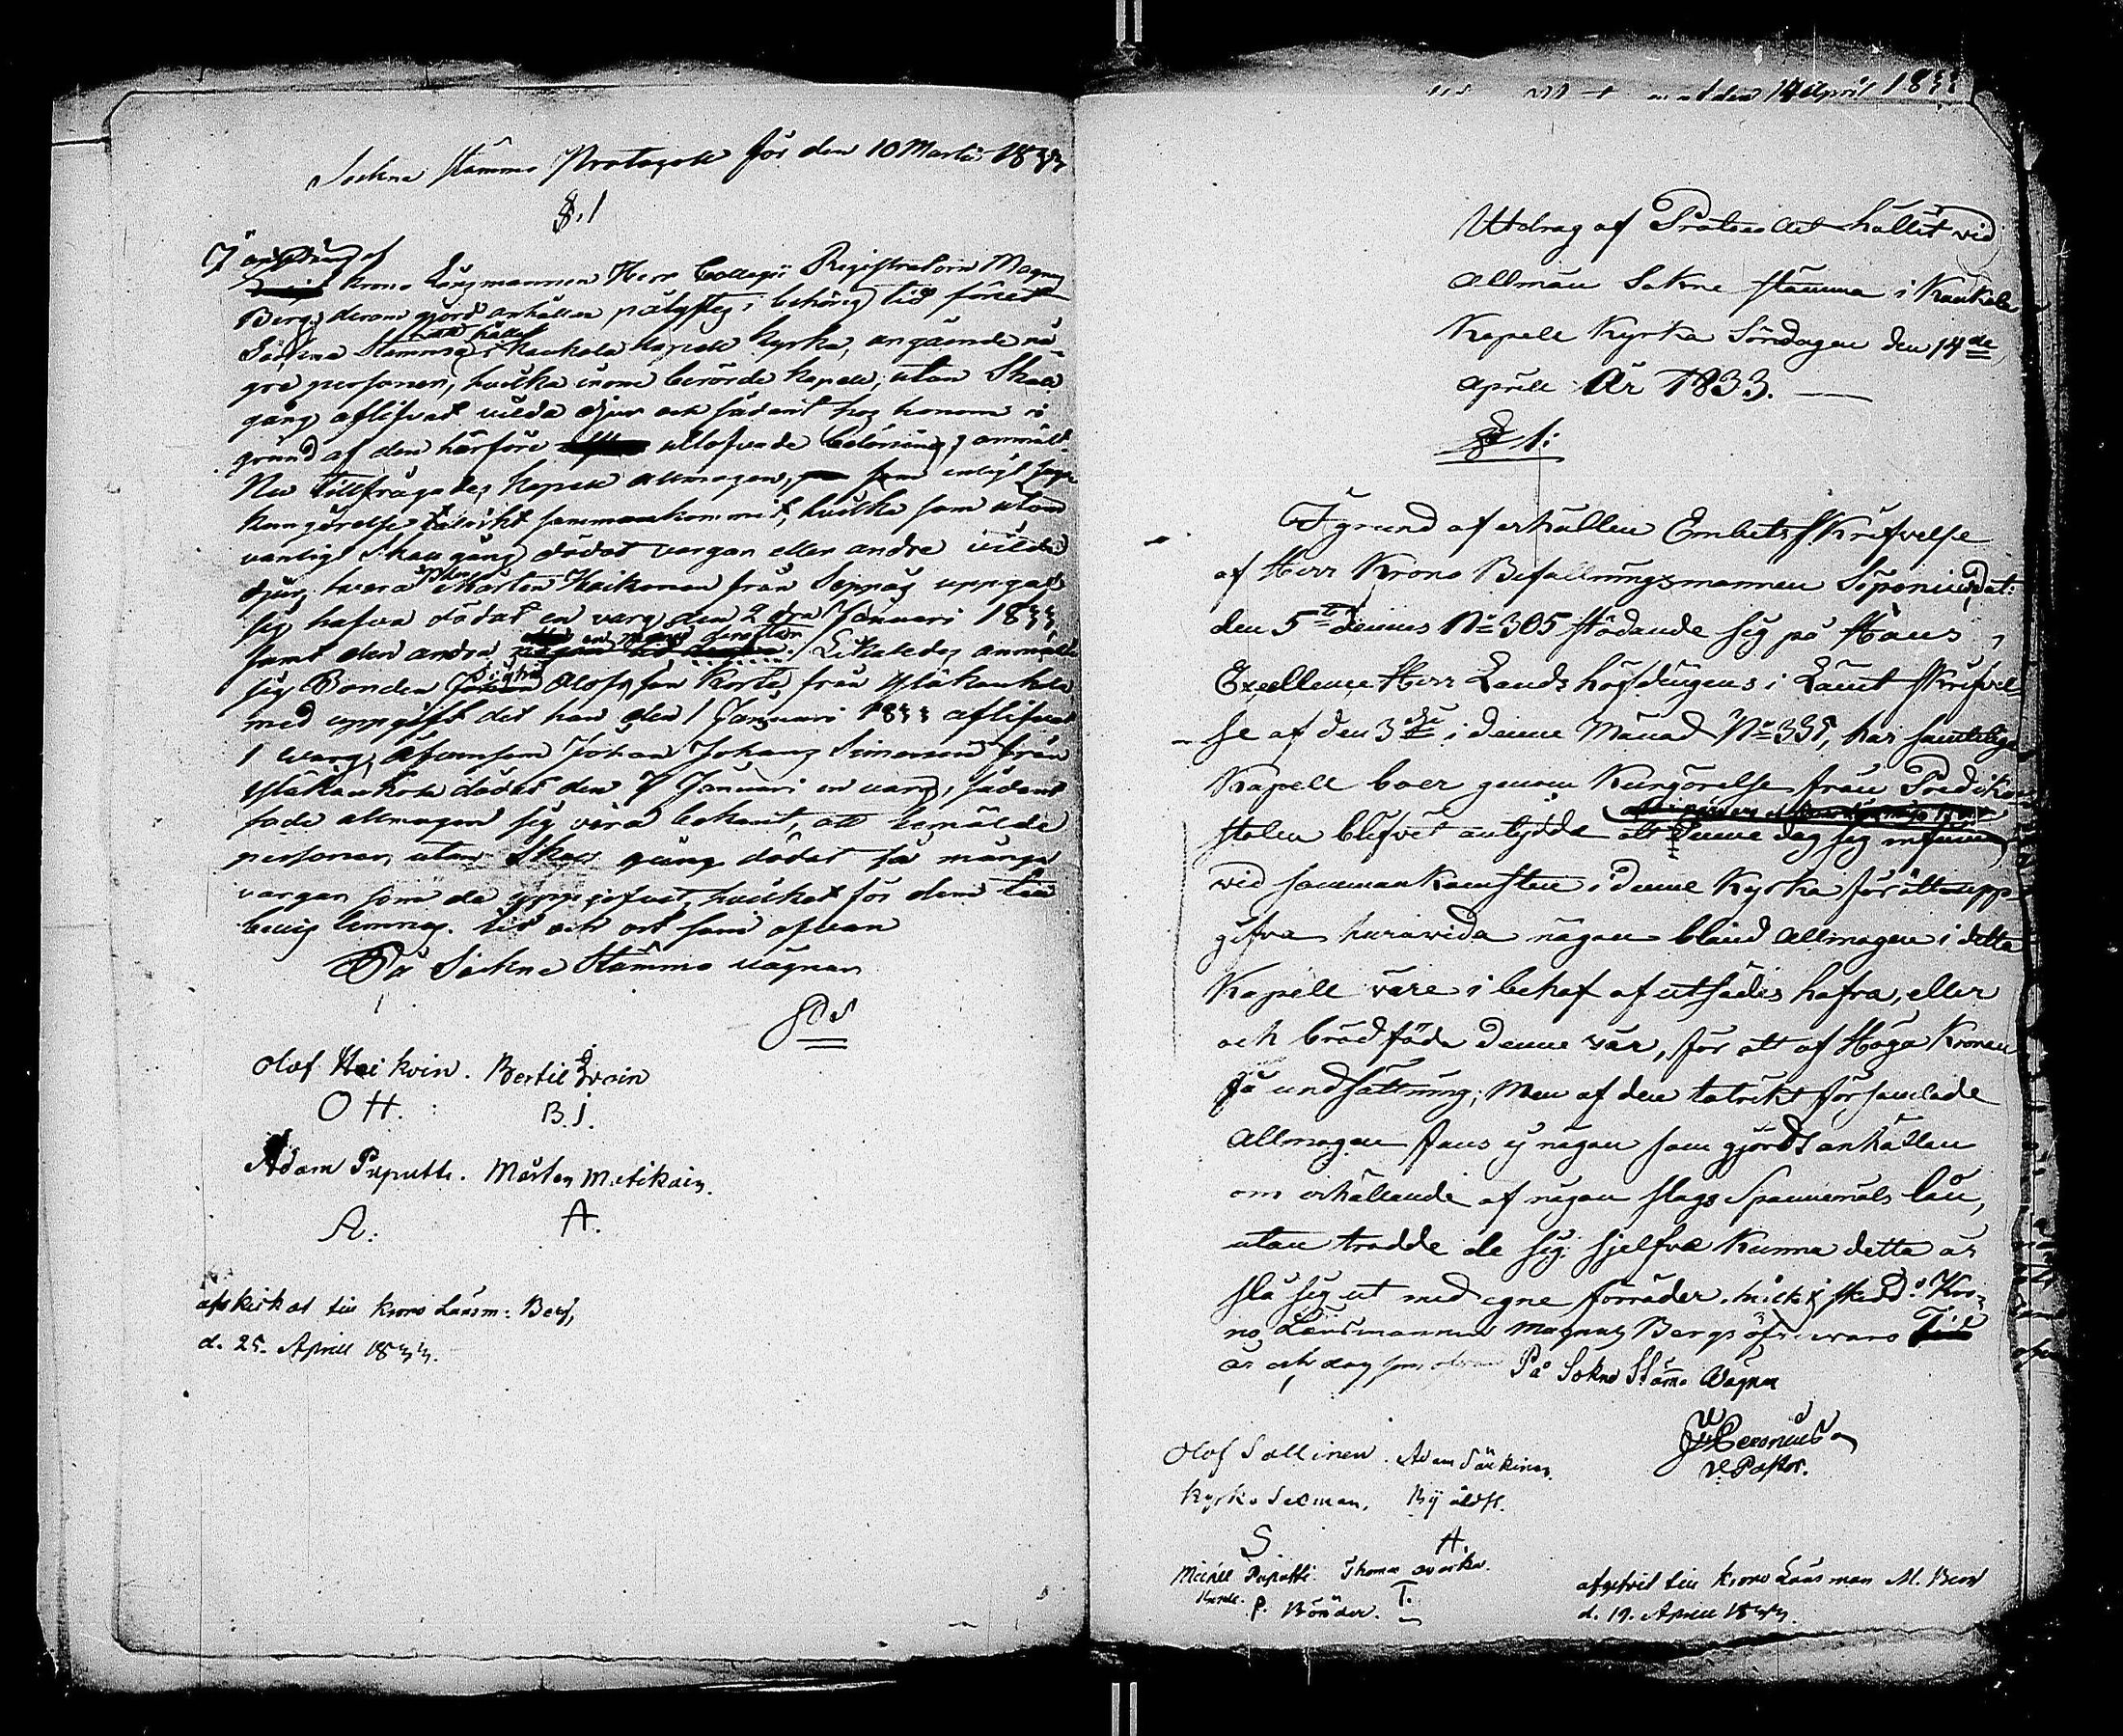 Sockne Stämmo Protogoll för den 10 Martii 1833
§. 1
I anledning af
Krono Länsmannen Herr Collegii Registratorn Magnus
Berg, derom gjord anhållan pålystes i behörig tid förut
Sockne Stämma att hållas i Kaukola Kapell Kyrka, angående nå-
gre personer, hvilka inom berörde Kapell, utan Skall
gång aflifvat vilda djur och sådant hos honom i
grund af den härföre utlofvade belöning, anmält.
Nu tillfrågades Kapell allmogen, som enligt
kungörelse talrikt sammankommit, hvilka som utom
vanlig Skall gång dödat vargar eller andre vilda
djur, hvarå Mårten Heikonen från Seppäs uppgaf
sig hafva dödat en varg den 2 dra Januari 1833
samt den andra en månad derefter. Likaledes anmälte
sig Bonden Olofsson Korte från Yläkaukola
med uppgift det han den 1 Januari 1833 aflifvat
1 warg, äfvensom Johan Johans Simonen från
Yläkaukola dödat den 7 Januari en varg, sådant
sade allmogen sig vara bekant, att bemälde
personer, utan Skall gång dödat så många
vargar som de uppgifvit, hvilket för dem till
bevis lemnas. tid och ort som ofvan
På Sockne Stämmo vägnar
Olof Heikoin. Bertil
O H. B. I.
Adam Puputti. Mårten Matikain.
A. A.
afskickat till Krono Länsm: Berg,
d. 25. Aprill 1833.
den 14 April 1833
Utdrag af Protocollet hållet vid
allmän Sokne stämma i Kaukola
Kapell Kyrka Söndagen den 14de
aprill År 1833.
§ 1:
I grund af erhållen Embets Skrifvelse
af Herr Krono Befallningsmannen Siponius, dat:
den 5te dennes No 305 stödande sig på Hans
Excellence Herr Lands höfdingens i Länet skrifvel-
se af den 3dje i denne Månad No 335, har samtelige
Kapell boer genom Kungörelse från Predik-
stolen blifvit antydde att denne dag sig infinna
vid sammankomsten i denne Kyrka för att upp-
gifva huruvida någon bland allmogen i detta
Kapell vore i behof af utsädes hafra, eller
och brödföda denne vår, för att af Höga Kronan
få undsättning; Men af den talrikt församlade
Allmogen fans ej någon som gjordt anhållan
om erhållande af någon slags Spannemåls lån,
utan trodde de sig sjelfva kunna detta år
slå sig ut med egne förråder, hvilket skedd i Kro-
no Länsmannen Magnus Bergs öfvervaro
år och dag som ofvan På Sokne Stäm̄o Wägnar
v Pastor.
Olof Sallinen. Adam Särkinen.
Kyrko Sexman, By åldst.
S A.
Michell Puputti Thomas
P. Bönder. T.
afgifvit till Krono Länsman M. Berg
d. 19. Aprill 1833.